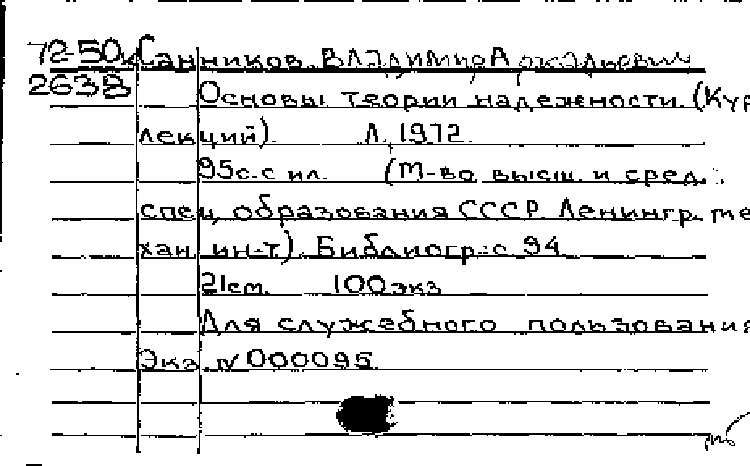 72-50 Санников Владимир Аркадьевич
2638
Основы теории надежности. (Кур
лекций). Л, 1972.
95с. с ил. (М-во высш. и сред.
спец. образования СССР. Ленингр. ме
хан. ин-т). Библиогр.: с 94
21см. 100экз
Для служебного пользования
Экз. N 000095